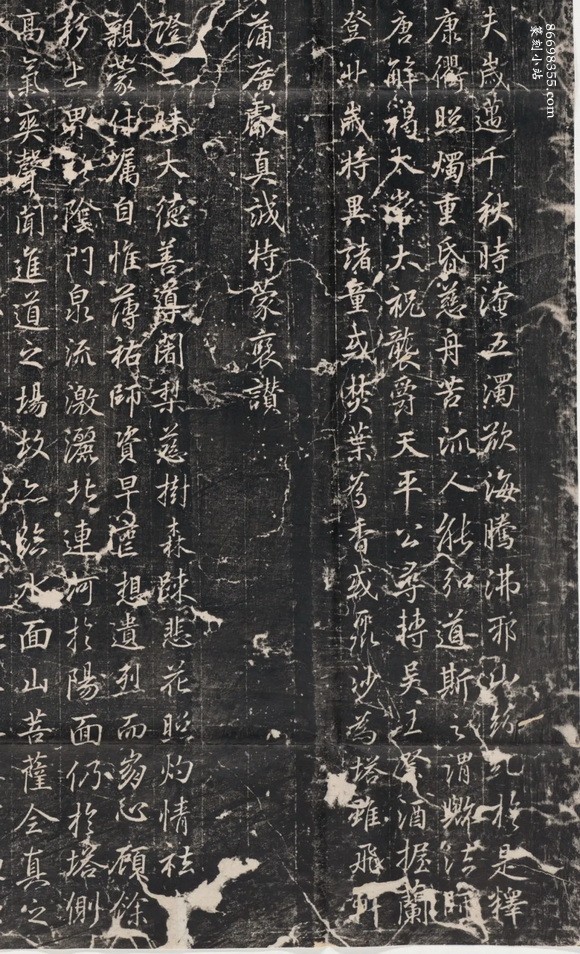 夫歲邁千秋時淹五濁欲海騰沸邪山紛糺於是釋
康衢照燭重昏慈舟苦流人能弘道斯之謂歟法師
唐解褐太常太祝襲爵天平公尋轉吳王祭酒握蘭
登卝歲時異諸童或焚葉為香或聚沙為塔雖飛軒
蒲広獻真誠特蒙褒讚
證三昧大德善導闍梨慈樹森疎悲花照灼情祛
親蒙付囑自惟薄祐師資早喪想遺烈而崩心顧餘
移上界陰門泉流激灑北連河於陽面仍於塔側
高氣爽聲聞進道之場故亦臨水面山菩薩全真之
86698355.com
篆刻小站